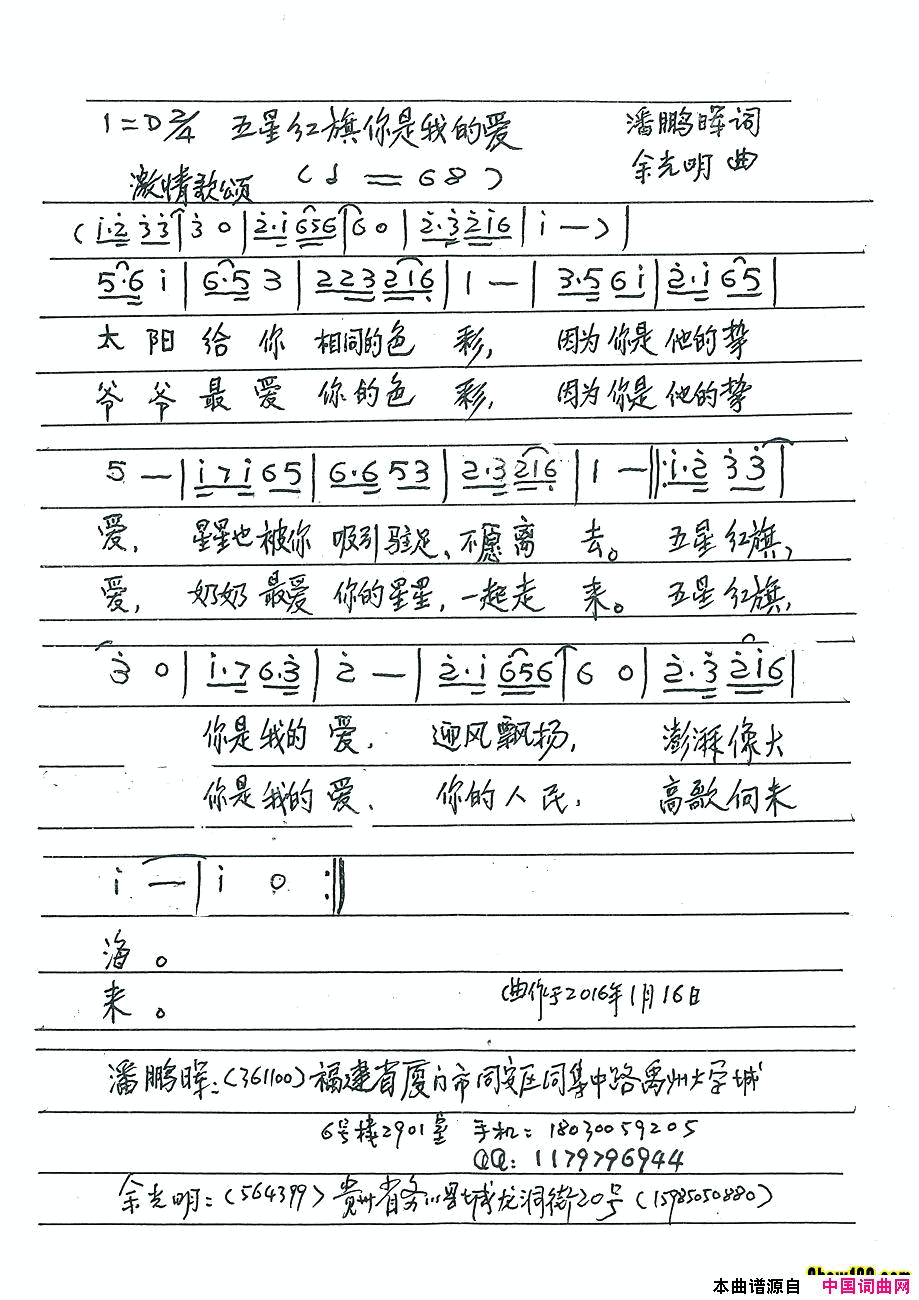 1=D 2/4 五星红旗你是我的爱 潘鹏晖词
激情歌颂 (♩=68) 余光明曲
(i·2̇ 3̇3̇|3̇ 0|2̇·i 656|6 0|2̇·3̇ 2̇i6|i —)|
5·6 i|6·5 3|223 216̣|1 —|3·5 6i|2̇·i 65|
太阳给你相同的色彩,因为你是他的挚
爷爷最爱你的色彩,因为你是他的挚
5 —|i7i 65|6·6 53|2·3 216̣|1 —‖:i·2̇ 3̇3̇|
爱,星星也被你吸引驻足、不愿离去。五星红旗,
爱,奶奶最爱你的星星,一起走来。五星红旗,
3̇ 0|i·7 6·3̇|2̇ —|2̇·i 656|6 0|2̇·3̇ 2̇i6|
你是我的爱,迎风飘扬,澎湃像大
你是我的爱、你的人民,高歌向未
i —|i 0 :‖
海。
来。 (曲作于2016年1月16日
潘鹏晖:(361100)福建省厦门市同安区同集中路禹州大学城
6号楼2901室 手机:18030059205
QQ:1179796944
余光明:(564399)贵州省务川县城龙洞街20号(15985050880)
本曲谱源自 中国词曲网